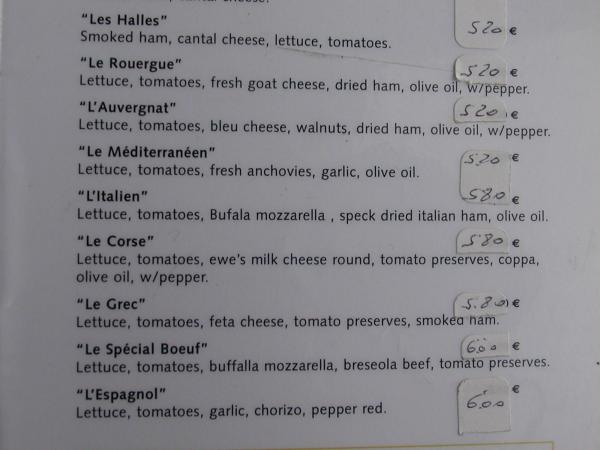 "Les Halles" 520 €
Smoked ham, cantal cheese, lettuce, tomatoes.
"Le Rouergue" 520 €
Lettuce, tomatoes, fresh goat cheese, dried ham, olive oil, w/pepper.
"L'Auvergnat" 520 €
Lettuce, tomatoes, bleu cheese, walnuts, dried ham, olive oil, w/pepper.
"Le Méditerranéen" 520 €
Lettuce, tomatoes, fresh anchovies, garlic, olive oil.
"L'Italien" 580 €
Lettuce, tomatoes, Bufala mozzarella , speck dried italian ham, olive oil.
"Le Corse" 580 €
Lettuce, tomatoes, ewe's milk cheese round, tomato preserves, coppa,
olive oil, w/pepper.
"Le Grec" 5.80 €
Lettuce, tomatoes, feta cheese, tomato preserves, smoked ham.
"Le Spécial Boeuf" 600 €
Lettuce, tomatoes, buffalla mozzarella, breseola beef, tomato preserves.
"L'Espagnol" 600 €
Lettuce, tomatoes, garlic, chorizo, pepper red.